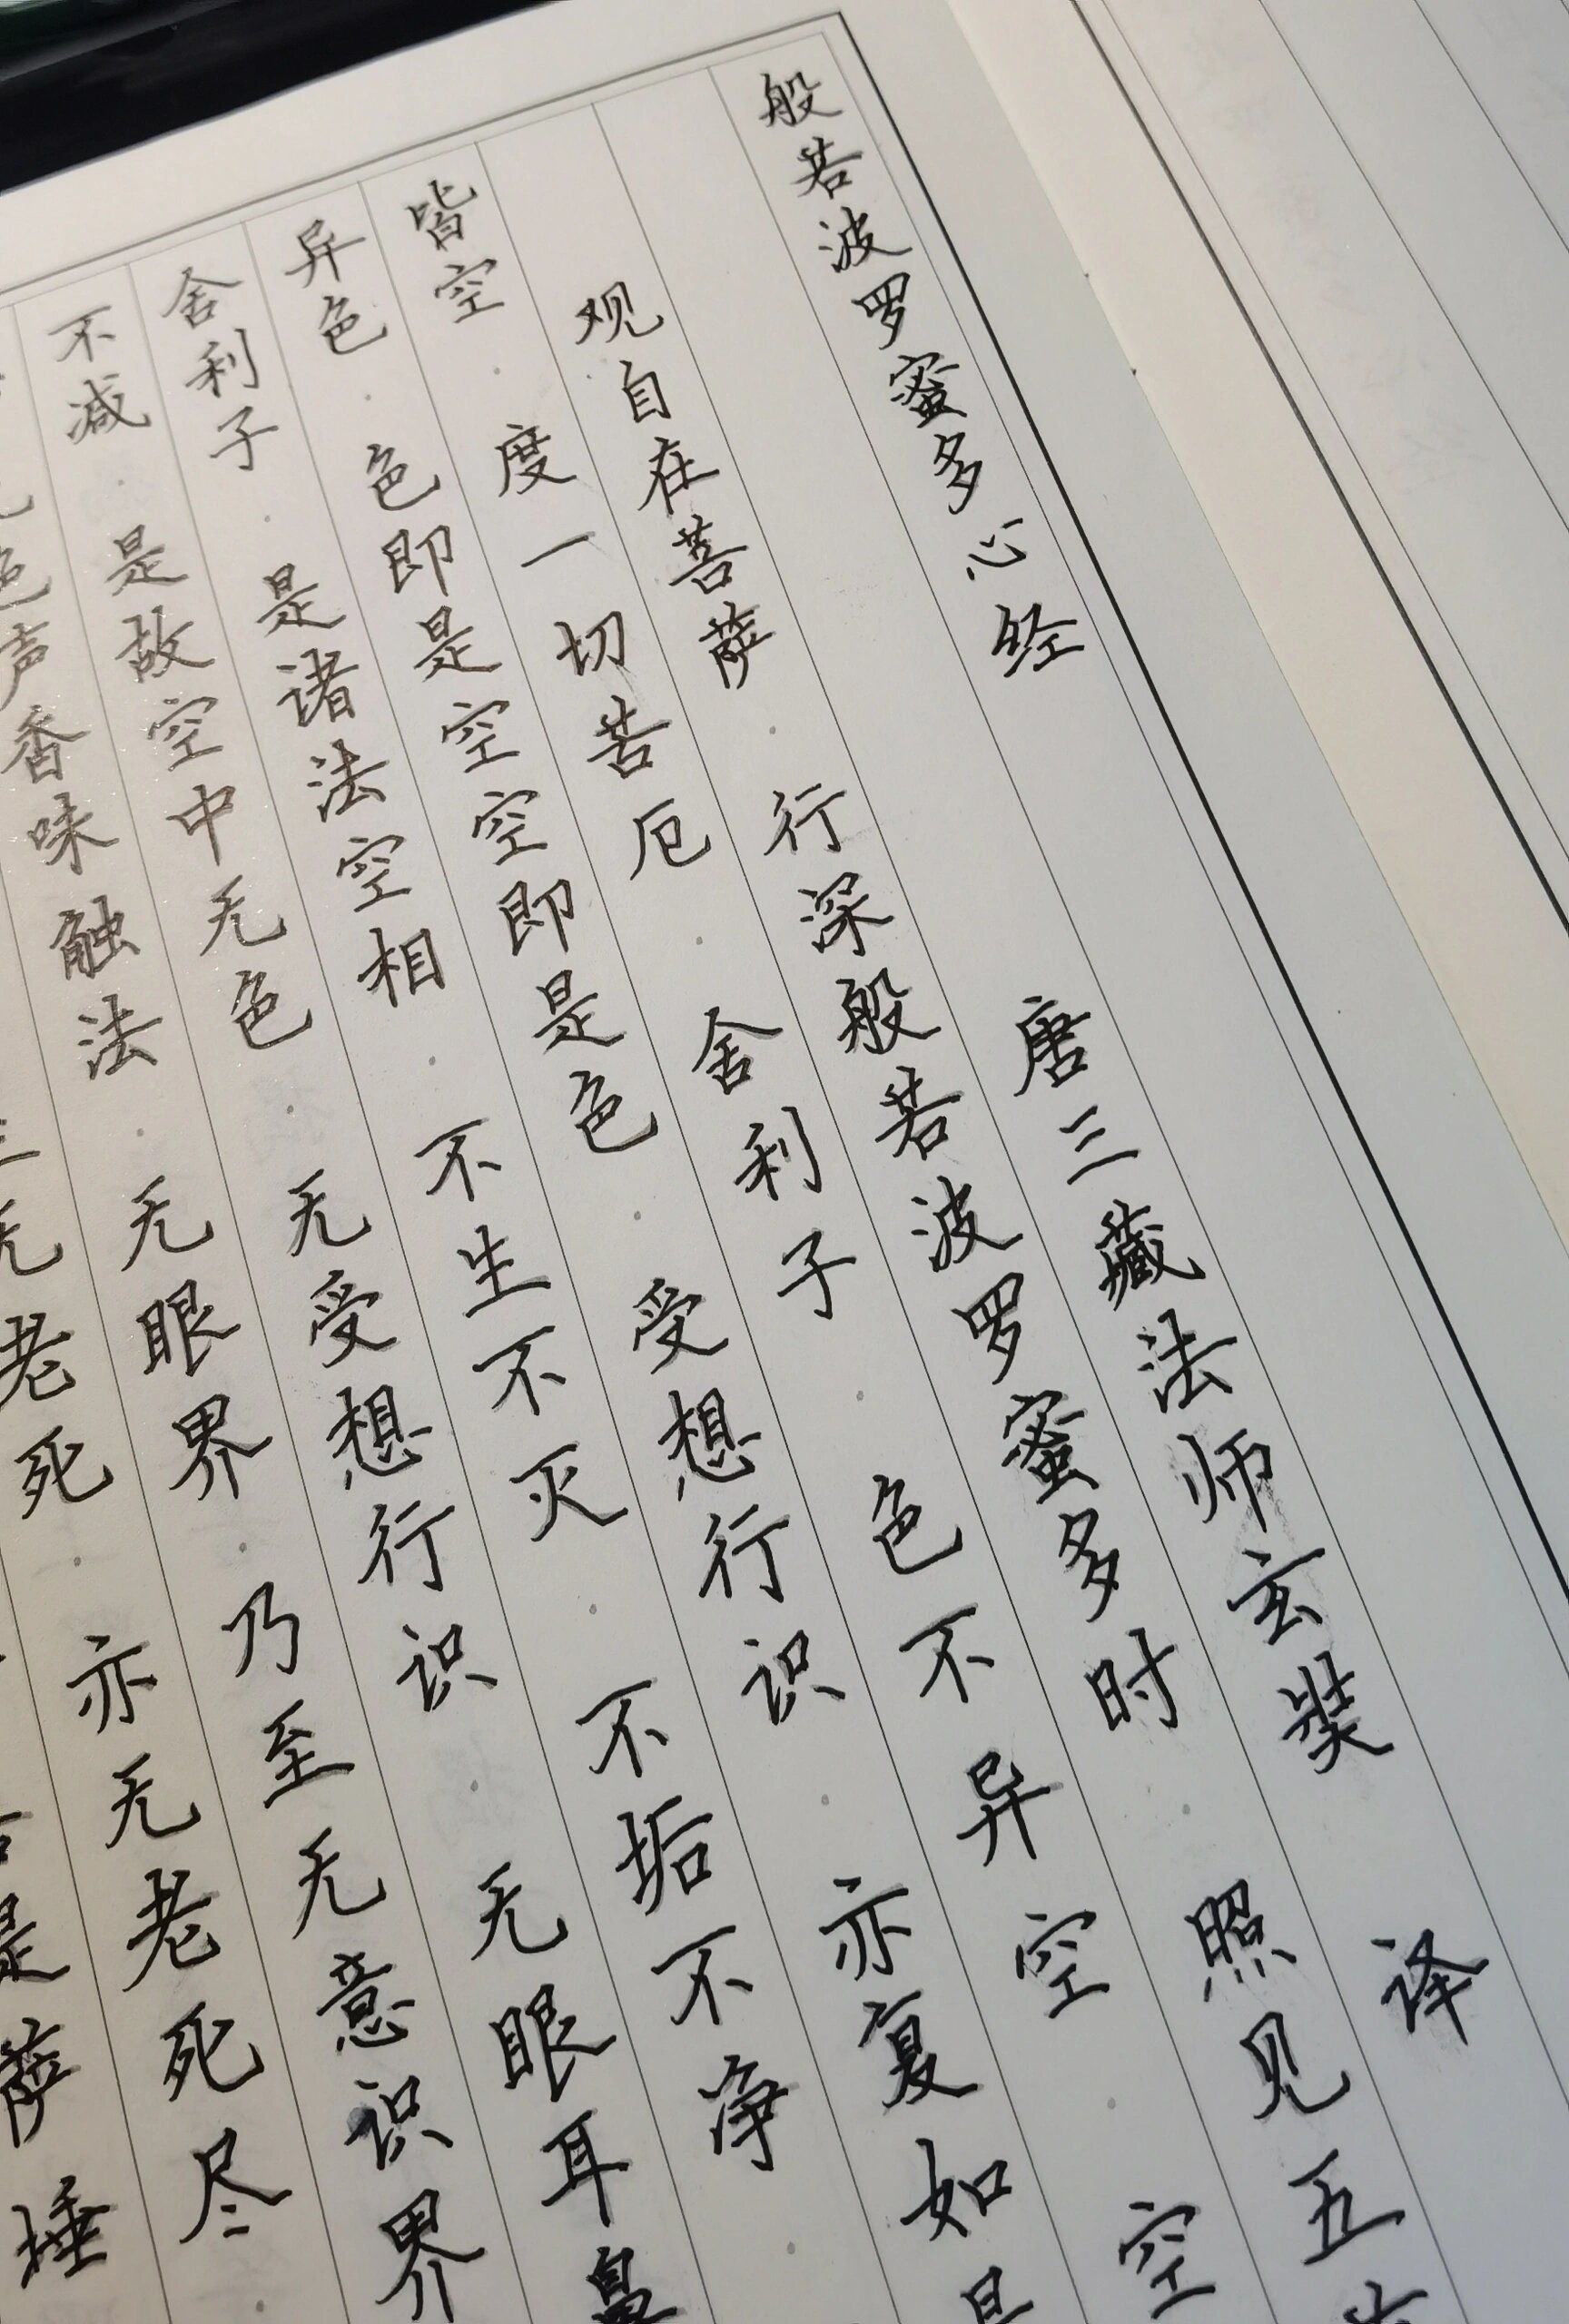 般若波罗蜜多心经 唐三藏法师玄奘 译
观自在菩萨·行深般若波罗蜜多时·照见五
皆空·度一切苦厄·舍利子·色不异空·空
异色·色即是空空即是色·受想行识·亦复如是
舍利子·是诸法空相·不生不灭·不垢不净·
不减·是故空中无色·无受想行识·无眼耳鼻
无色声香味触法·无眼界·乃至无意识界
无老死·亦无老死尽·
萨埵